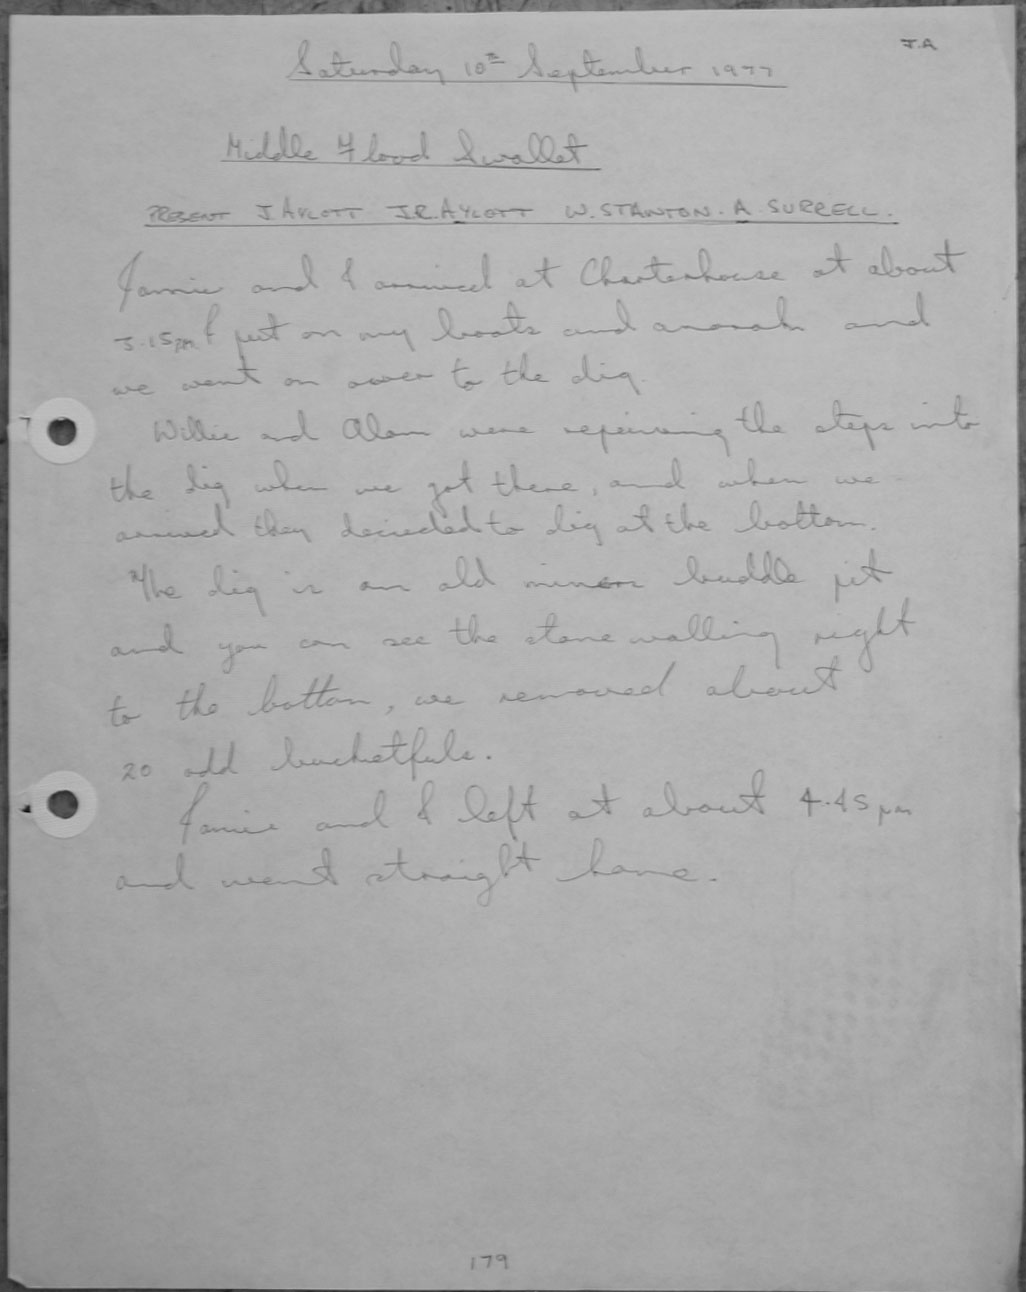 J.A
Saturday 10th September 1977
Middle Flood Swallet
PRESENT J AYLOTT J.R. AYLOTT W. STANTON. A. SURRELL.
Jamie and I arrived at Charterhouse at about
3.15pm I put on my boots and anorak and
we went on over to the dig.
Willie and Alan were repairing the steps into
the dig when we got there, and when we
arrived they decided to dig at the bottom.
The dig is an old miners buddle pit
and you can see the stone walling right
to the bottom, we removed about
20 odd bucketfuls.
Jamie and I left at about 4.45pm
and went straight home.
179